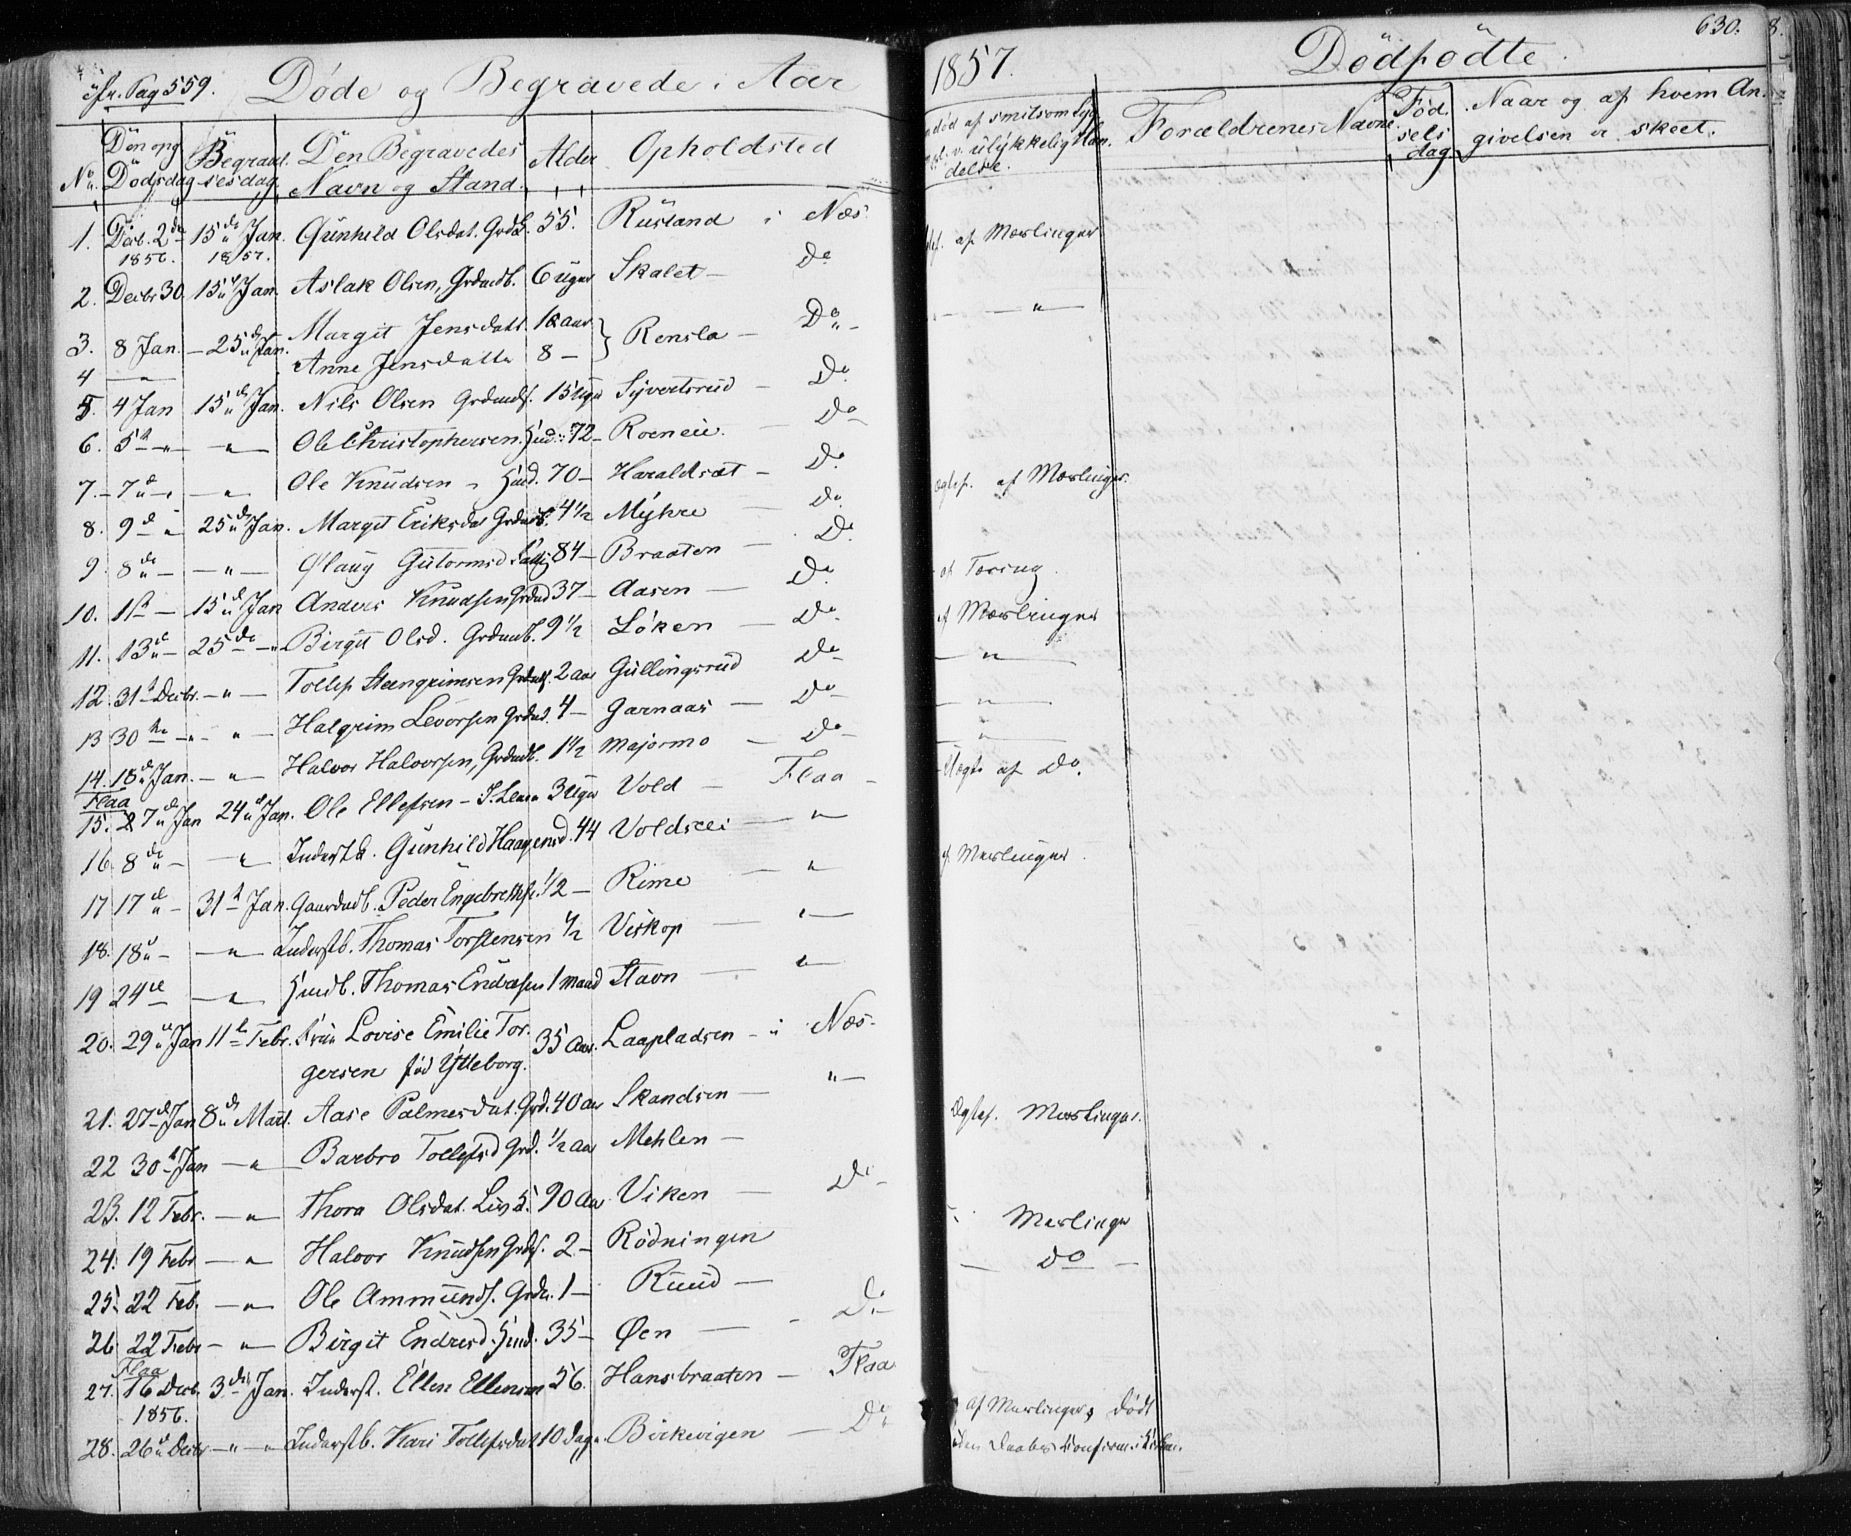 Pag 559. Døde og Begravede i Aar 1857. Dødfødte. 630.
No. Døn og Dødsdag Begravelsesdag Den Begravedes Navn og Stand. Alder Opholdsted død af smitsom Syg v. ulykkelig Hændelse. Forældrenes Navne Fødselsdag Naar og af hvem Angivelsen er skeet.
1. Decb. 2den 1856. 15de Jan. 1857. Gunhild Olsdat. 55. Rusland i Næs. af Mæslinger
2. Decbr 30 15de Jan. Aslak Olsen, Grdmdb. 6 uger Skalet — Do — " —
3. 8 Jan. — 25de Jan. Margit Jensdatt. 12 aar } Rensla — Do —
4 — " — Anne Jensdatte 8 —
5. 4 Jan 15de Jan. Nils Olsen Grdmds. 15 uger Syvertsrud — Do
6. 5t — " — Ole Christophersen. 72 — Roeneie. — Do
7. — 7de — " — Ole Knudsen 70 — Haraldsæt — Do af Mæslinger.
8. 9d — 25de Jan. Margit Eriksdat 4 1/2 Myhre — Do
9. 8de — — " — Olaug Gutormsd 84 — Braaten — Do
10. 1ste — 15de Jan Anders Knudsen 37 — Aasen — Do af Tæring.
11. 13de — 25de — Birgit Olsd. Grdmdb. 9 1/2 Løken — Do af Mæslinger
12. 31t Decbr. — " — Tollef Steengrimsen 2 aar Gullingsrud Do — " —
13 30te — " — " — Halgrim Levorsen 4 — Garnaas — Do — " —
14. 18de Jan. — " — Halvor Halvorsen, Grdmdb. 1 1/2 Majormo — Do — " —
Flaa
15. 27de Jan 24de Jan. Ole Ellefsen — 3 Uger Vold — Flaa — af Do.
16. 8de — — " — Inderstk. Gunhild Haagensd. 44 Voldseie — " —
17 17de — 31t Jan. Gaardmdb. Peder Engebrethsen 1/2 — Rime — " — af Mæslinger.
18. 18de — — " — Inderstb. Thomas Torstensen 1/2 Viskop — " —
19 24de — " — Thomas 1 maand Stavn — " —
20. 29de Jan 11te Febr. Fru Lovise Emilie Torgersen fød Ytteborg. 35 aar. Laapladsen — i Næs.
21. 27de Jan 8de Mart. Aase Palmesdat. 40 aar Skandsen — " — Mæslinger.
22 30t Jan — " — Barbro Tollefsd 1/2 aar Mehlen —
23. 12 Febr. — " — Thora Olsdat. 90 Aar Viken — Do — Mæslinger
24. 19 Febr — " — Halvor Knudsen 2 — Rødningen — Do —
25. 22 Feb. — " — Ole Ammunds. 1 — Ruud —
26 22 Febr — " — Birgit Endresd. 35 — Øen — Do —
Flaa
27. 16 Decb. 1856. 3die Jan. Inderst. Ellen Ellensen 56. Hansbraaten — Flaa
28. 26de Decbr — " — Inderstb. Kari Tollefsdat 10 dage. Birkevigen — Do af Mæslinger, Døbt